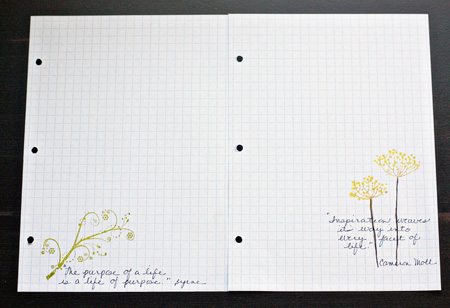 "The purpose of a life
is a life of purpose"
"Inspiration weaves
its way into
every facet of
life."
Cameron Moll